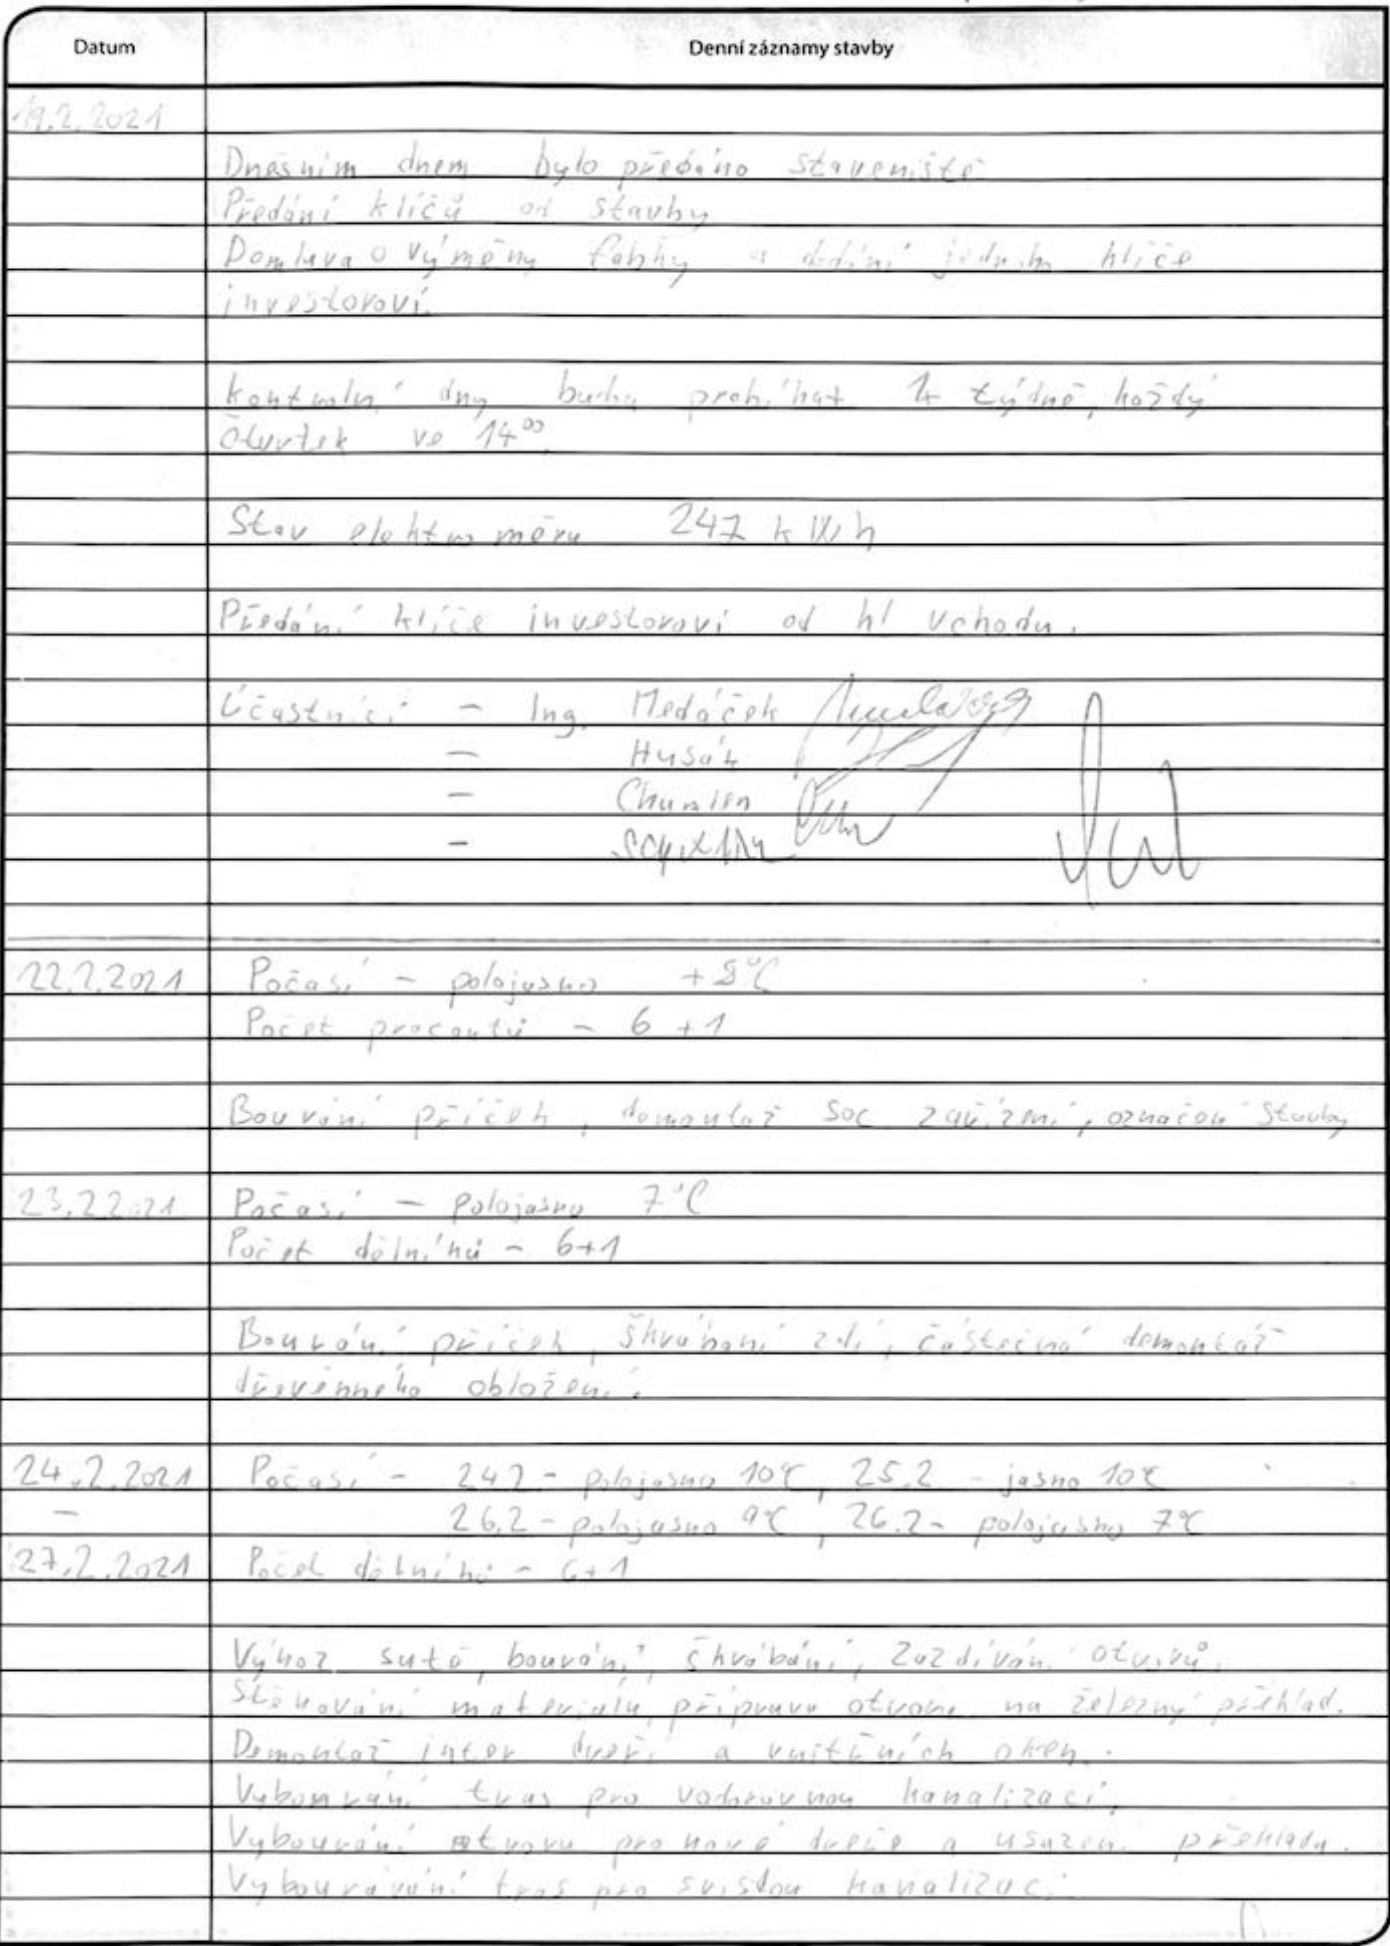 Datum Denní záznamy stavby
19.2.2021
Dnešním dnem bylo předáno staveniště
Předání klíčů od stavby
Domluva o výměny fabky a dodání jednoho klíče
investorovi.
Kontrolní dny budou probíhat 1x týdně, každý
čtvrtek ve 14⁰⁰
Stav elektroměru 247 kWh
Předání klíče investorovi od hl vchodu.
Účastníci - Ing. Medáček
- Husák
- Chumlen
-
22.2.2021 Počasí - polojasno +8°C
Počet pracantů - 6 +1
Bourání příček, demontáž soc zařízení, označení stavby
23.2.2021 Počasí - polojasno 7°C
Počet dělníků - 6+1
Bourání příček, škrábání zdí, částečná demontáž
dřevěnného obložení.
24.2.2021 Počasí - 24.2 - polojasno 10°C, 25.2 - jasno 10°C
- 26.2 - polojasno 9°C, 26.2 - polojasno 7°C
27.2.2021 Počet dělníků - 6+1
Vývoz sutě, bourání, škrábání, zazdívání otvorů.
Stěhování materiálu, příprava otvoru na železný překlad.
Demontáž inter dveří a vnitřních oken.
Vybourání tras pro vodorovnou kanalizaci.
Vybourání otvoru pro nové dveře a usazení překladu.
Vybourávání tras pro svislou kanalizaci.